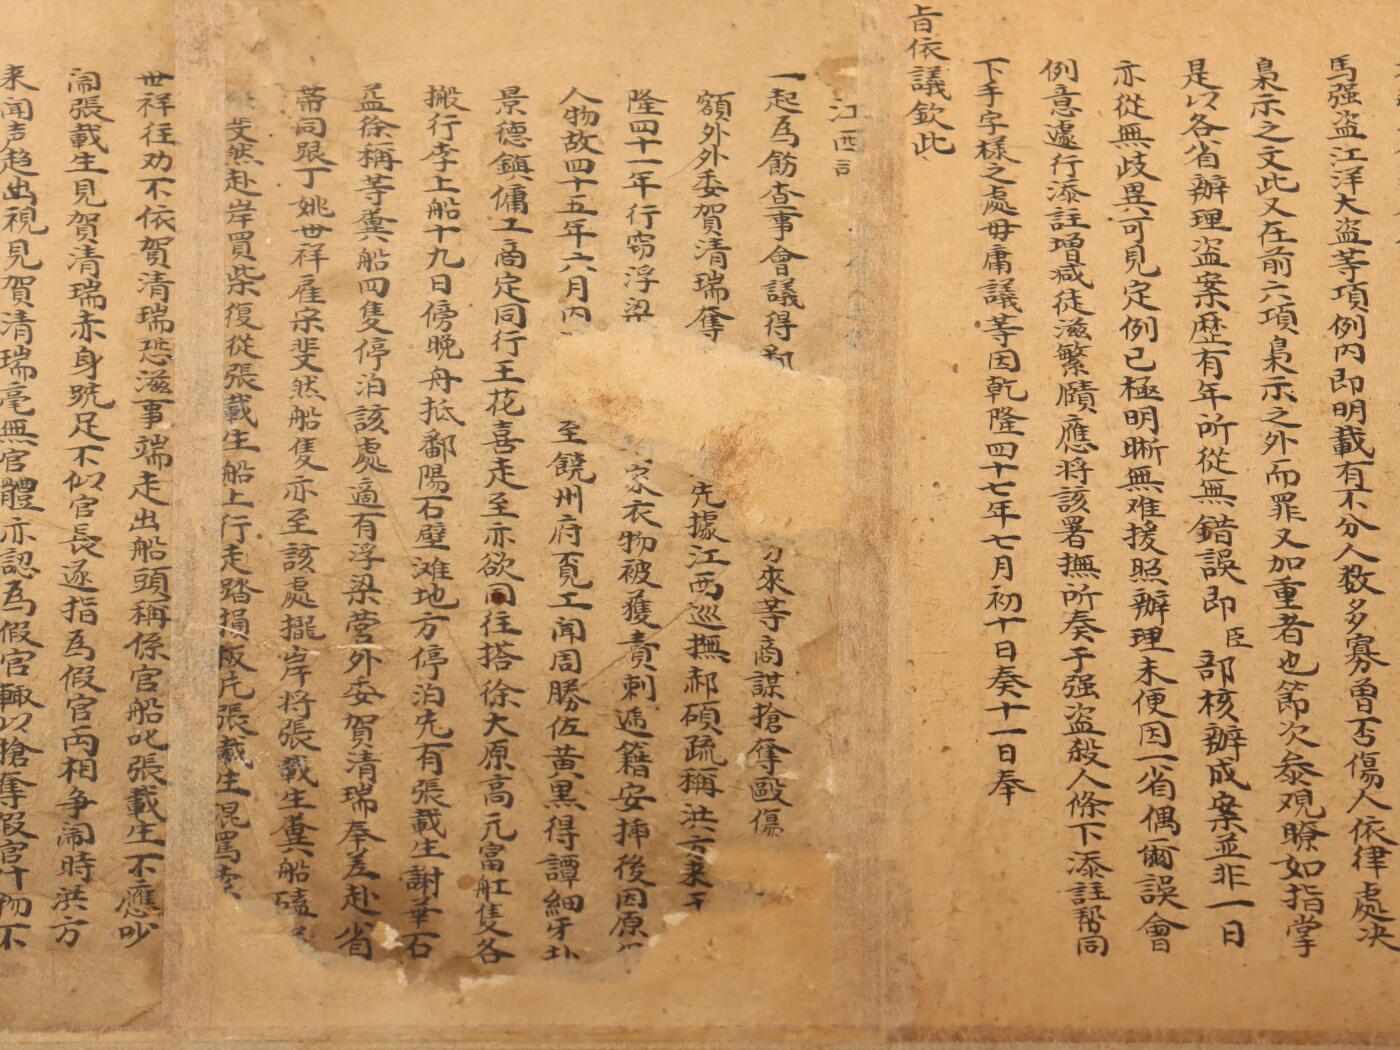 馬强盗江洋大盗等項例內即明載有不分人数多寡曾否傷人依律處决
梟示之文此又在前六項梟示之外而罪又加重者也節次叅观瞭如指掌
是以各省辦理盗案歷有年所從無錯誤即臣部核辦成案並非一日
亦從無歧異可見定例已極明晰無难援照辦理未便因一省偶爾誤會
例意遽行添註增减徒滋繁賾應将該署撫所奏于强盗殺人條下添註幇同
下手字様之處毋庸議等因乾隆四十七年七月初十日奏十一日奉
旨依議欽此
江西司
一起為飭查事會議得鄱 方來等商謀搶奪毆傷
額外外委賀清瑞奪 先據江西巡撫郝碩疏稱洪方来于
隆四十一年行窃浮梁 家衣物被獲責刺遞籍安揷後因原
人物故四十五年六月内 至饒州府覓工闻周勝佐黄黒得譚細牙赴
景德鎮傭工商定同行王花喜走至亦欲同往搭徐大原高元富舡隻各
搬行李上船十九日傍晚舟抵鄱陽石壁滩地方停泊先有張載生謝華石
孟徐稱等糞船四隻停泊該處適有浮梁营外委賀清瑞奉差赴省
帶同跟丁姚世祥雇宗斐然船隻亦至該處攏岸将張載生糞船磕
斐然赴岸買柴復從張載生船上行走踏損板片張載生混罵
世祥往劝不依賀清瑞恐滋事端走出船頭稱係官船叱張載生不應吵
闹張載生見賀清瑞赤身跣足不似官長遂指為假官両相争闹時洪方
来闻声趋出視見賀清瑞毫無官體亦認為假官輙以搶奪假官什物不